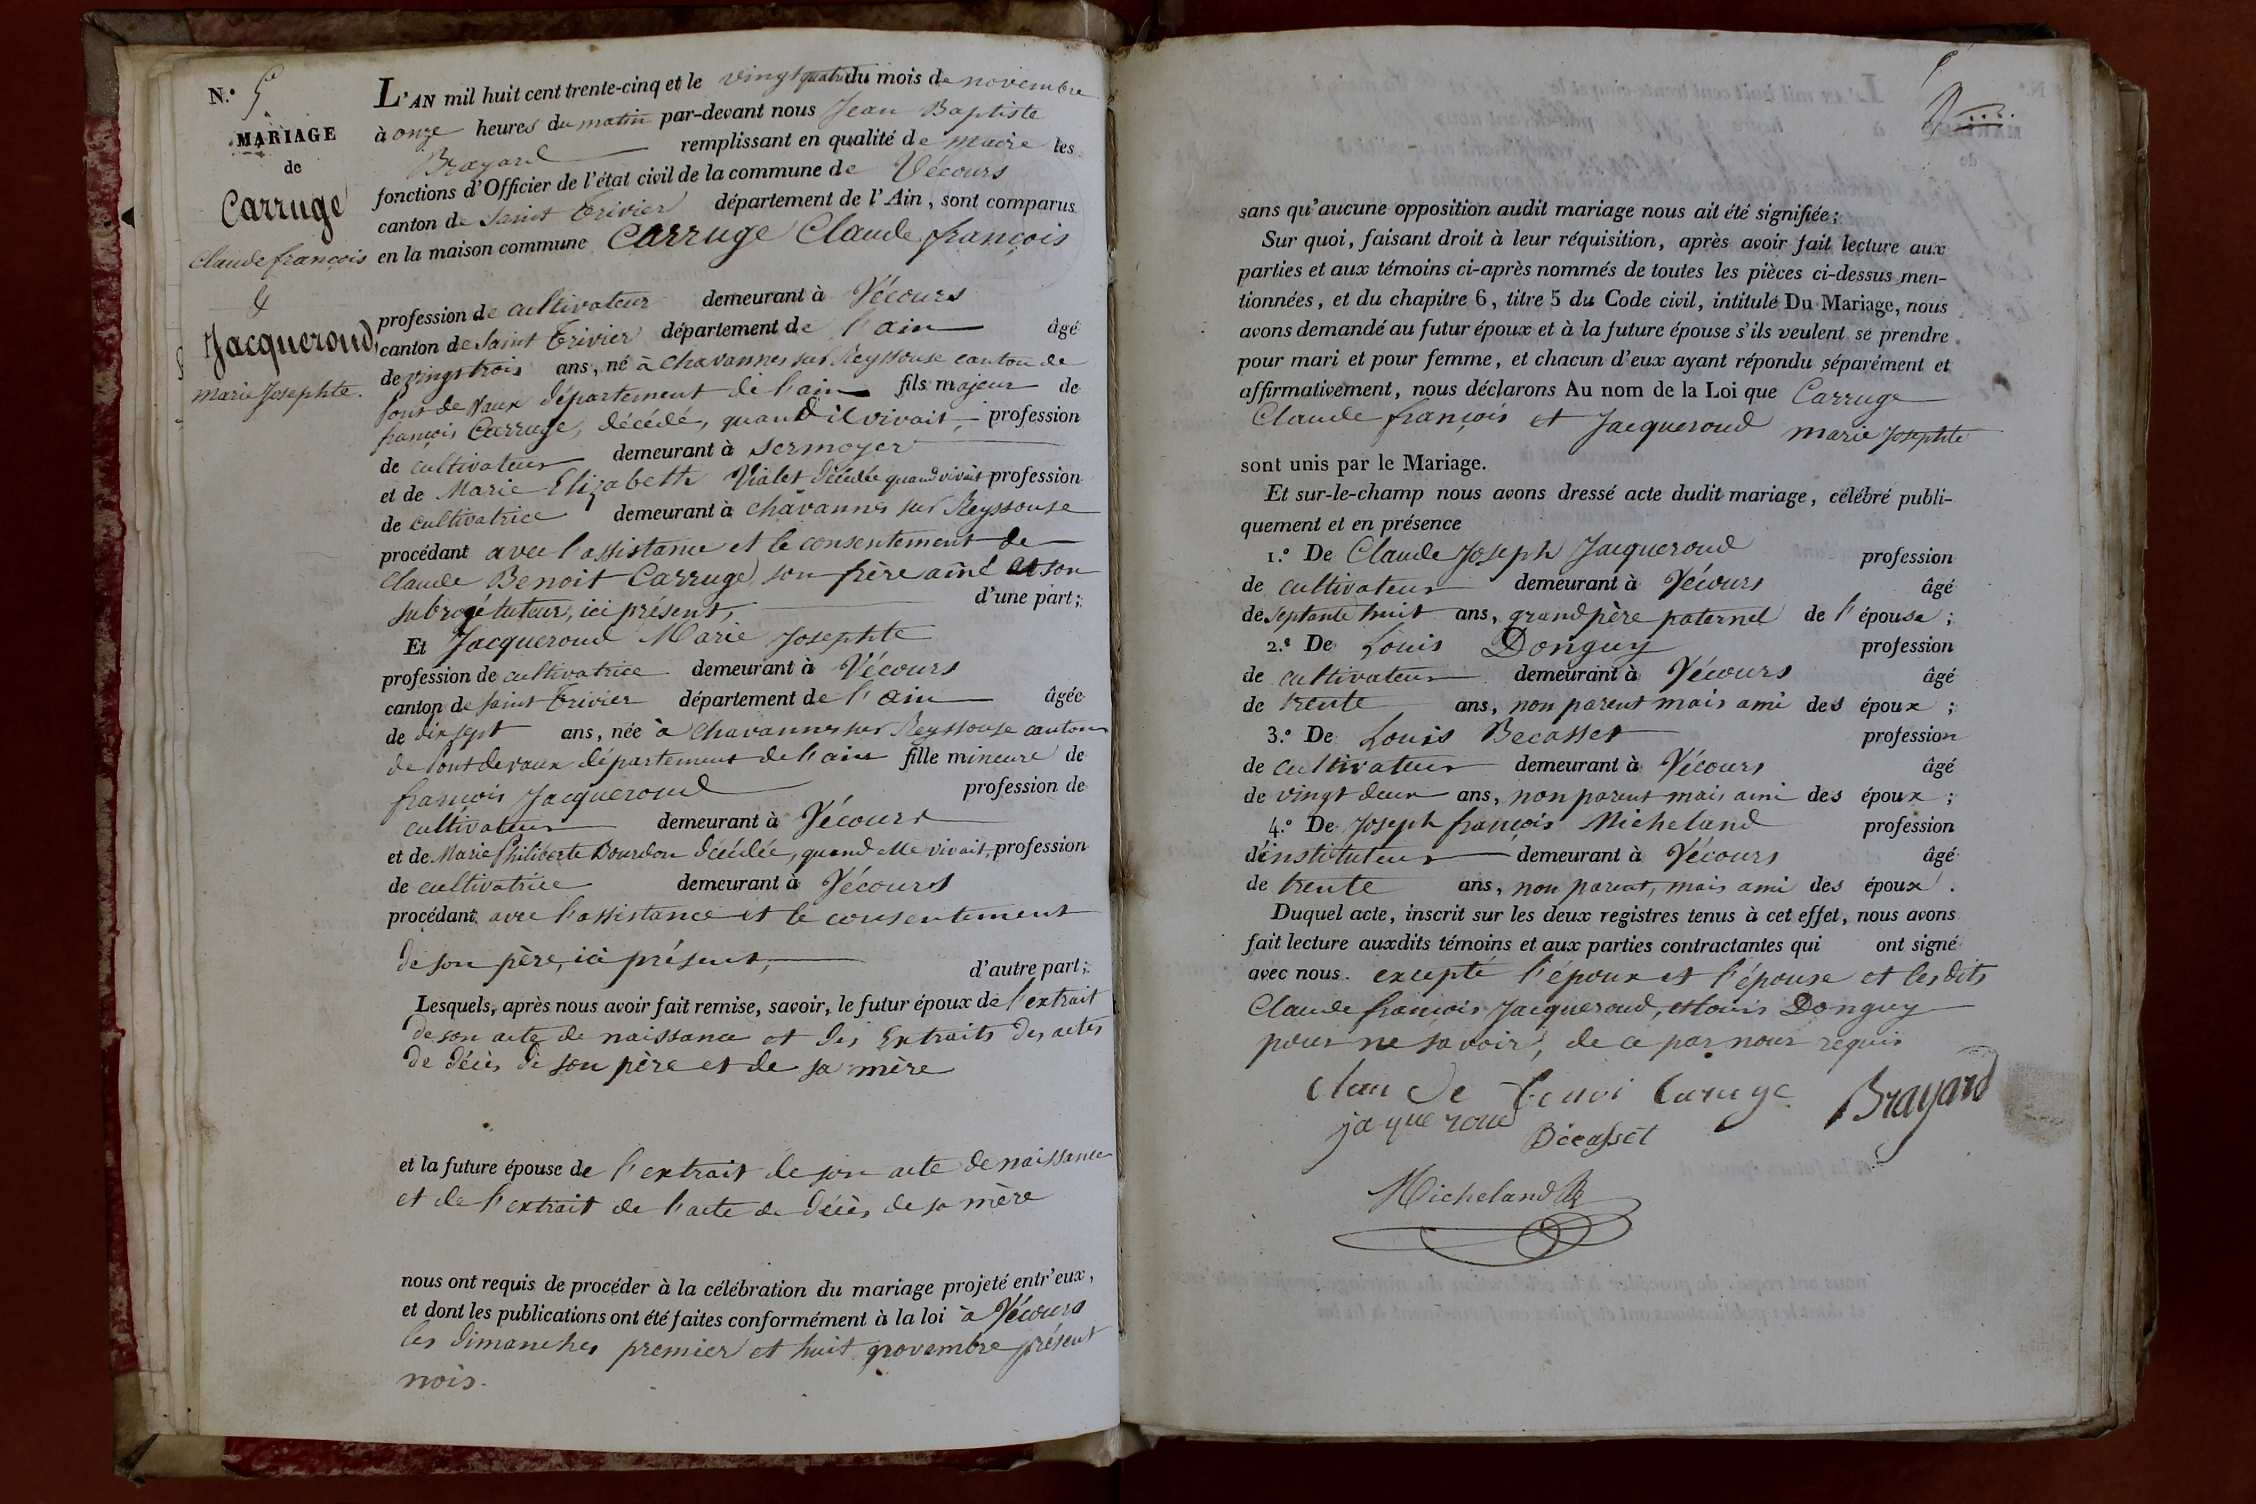 N.° 5
MARIAGE
de
Carruge
Claude françois
&
Jacqueroud,
marie Josephte.
L'AN mil huit cent trente-cinq et le vingt quatre du mois de novembre
à onze heures du matin par-devant nous Jean Baptiste
Brayard remplissant en qualité de maire les
fonctions d'Officier de l'état civil de la commune de Vécours
canton de Saint Trivier département de l'Ain, sont comparus
en la maison commune Carruge Claude françois
profession de cultivateur demeurant à Vécours
canton de Saint Trivier département de l'ain âgé
de vingt trois ans, né à Chavannes sur Reyssouse canton de
pont de Vaux département de l'ain fils majeur de
françois Carruge, décédé, quand il vivait, profession
de cultivateur demeurant à Sermoyer
et de Marie Elizabeth Vialet décédée quand vivait profession
de cultivatrice demeurant à chavannes sur Reyssouse
procédant avec l'assistance et le consentement de
Claude Benoit Carruge son frère ainé et son
subrogé tuteur, ici présent, d'une part;
Et Jacqueroud Marie Josephte
profession de cultivatrice demeurant à Vécours
canton de saint Trivier département de l'ain âgée
de dix sept ans, née à Chavannes sur Reyssouse canton
de pont de vaux département de l'ain fille mineure de
françois Jacqueroud profession de
cultivateur demeurant à Vécours
et de Marie Philiberte Bourdon décédée, quand elle vivait, profession
de cultivatrice demeurant à Vécours
procédant avec l'assistance et le consentement
de son père, ici présent, d'autre part;
Lesquels, après nous avoir fait remise, savoir, le futur époux de l'extrait
de son acte de naissance et des Extraits des actes
de décès de son père et de sa mère
et la future épouse de l'extrait de son acte de naissance
et de l'extrait de l'acte de décès de sa mère
nous ont requis de procéder à la célébration du mariage projeté entr'eux,
et dont les publications ont été faites conformément à la loi à Vécours
les dimanches premier et huit novembre présent
mois.
sans qu'aucune opposition audit mariage nous ait été signifiée;
Sur quoi, faisant droit à leur réquisition, après avoir fait lecture aux
parties et aux témoins ci-après nommés de toutes les pièces ci-dessus men-
tionnées, et du chapitre 6, titre 5 du Code civil, intitulé Du Mariage, nous
avons demandé au futur époux et à la future épouse s'ils veulent se prendre
pour mari et pour femme, et chacun d'eux ayant répondu séparément et
affirmativement, nous déclarons Au nom de la Loi que Carruge
Claude françois et Jacqueroud marie Josephte
sont unis par le Mariage.
Et sur-le-champ nous avons dressé acte dudit mariage, célébré publi-
quement et en présence
1.° De Claude Joseph Jacqueroud profession
de cultivateur demeurant à Vécours âgé
de septante huit ans, grand père paternel de l'épouse;
2.° De Louis Donguy profession
de cultivateur demeurant à Vécours âgé
de trente ans, non parent mais ami des époux;
3.° De Louis Becasset profession
de cultivateur demeurant à Vécours âgé
de vingt deux ans, non parent mais ami des époux;
4.° De Joseph françois Micheland profession
d'instituteur demeurant à Vécours âgé
de trente ans, non parent, mais ami des époux.
Duquel acte, inscrit sur les deux registres tenus à cet effet, nous avons
fait lecture auxdits témoins et aux parties contractantes qui ont signé
avec nous. excepté l'époux et l'épouse et les dits
Claude françois Jacqueroud, et Louis Donguy
pour ne savoir, de ce par nous requis
Clau de benoi Caruge Brayard
jaqueroud
Bécasset
Micheland